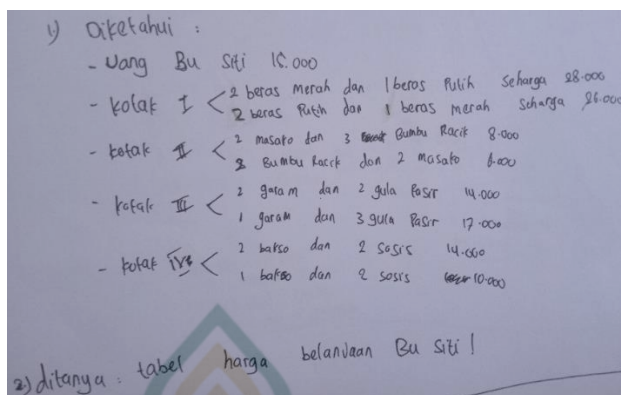 1.) Diketahui :
- Uang Bu Siti 1000
- kotak I < 2 beras merah dan 1 beras Putih Seharga 28.000
2 beras Putih dan 1 beras merah Seharga 26.000
- kotak II < 2 masako dan 3 Bumbu Racik 8.000
Bumbu Racik dan 2 masako 6.000
- kotak III < 2 garam dan 2 gula Pasir 14.000
1 garam dan 3 gula Pasir 17.000
- kotak IV < 2 bakso dan 2 sosis 14.000
1 bakso dan 2 sosis 10.000
2) ditanya : tabel harga belanjaan Bu Siti !